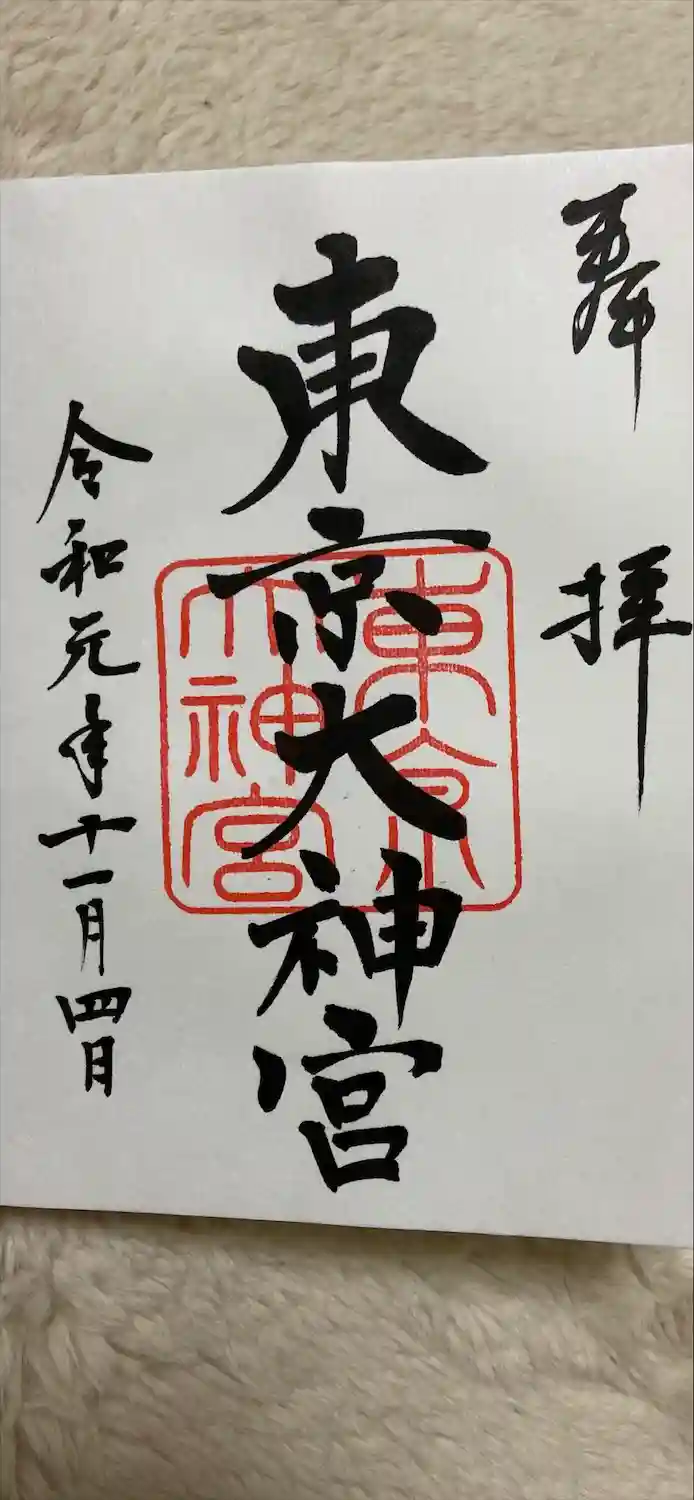 奉拝
東京大神宮
東京
大神宮
令和元年十一月四日